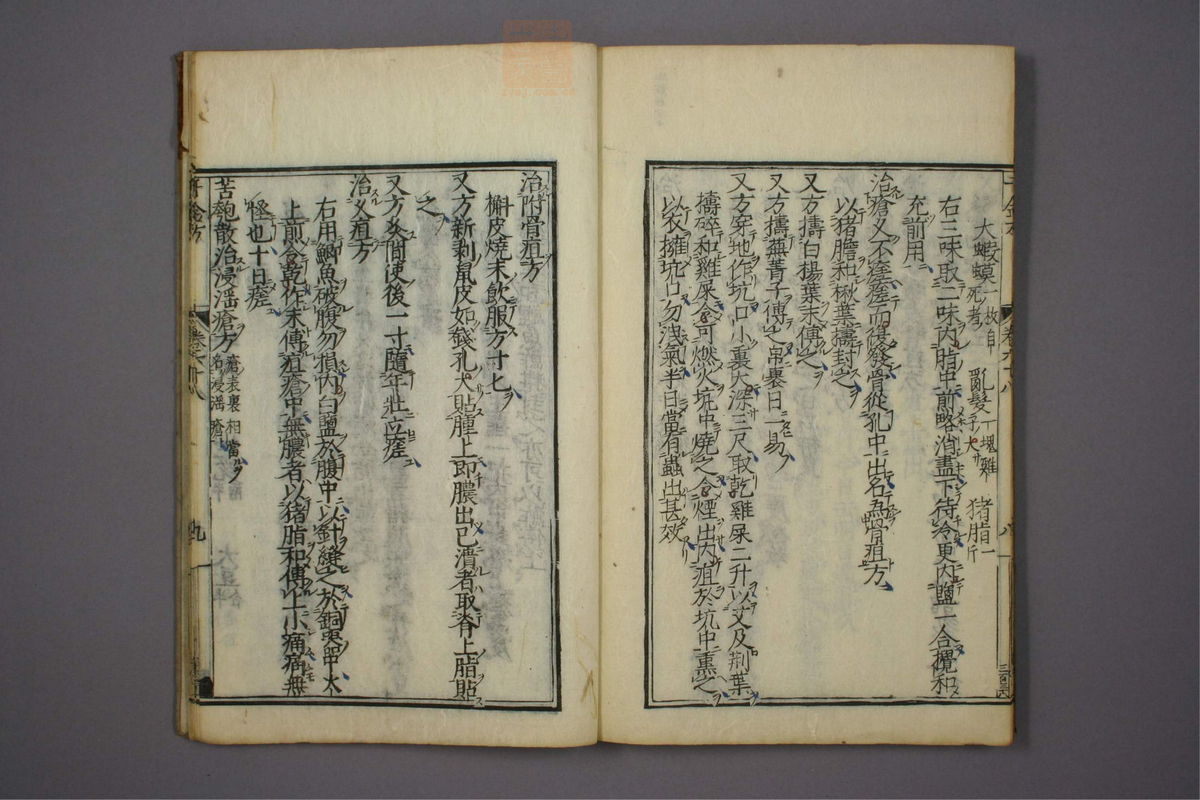 大蝦蟇一枚自死者 亂髮一塊雞子大 猪脂一斤
右三味取二味内脂中煎略消盡下待冷更内鹽一合攪和
充前用
治瘡久不痊瘥而復發骨從孔中出名爲骨疽方
以猪膽和楸葉擣封之
又方擣白楊葉末傅之
又方擣蕪菁子傅之帛裹日一易
又方穿地作坑口小裏大深三尺取乾雞屎二升以艾及荆葉
擣碎和雞屎令可燃火坑中燒之令煙出内疽於坑中熏之
以衣擁坑口勿洩氣半日當有蟲出甚效
卷六十八
八
治附骨疽方
槲皮燒末飲服方寸匕
又方新剥鼠皮如錢孔大貼腫上即膿出已潰者取脊上脂貼
之
又方灸間使後一寸隨年壯立瘥
治久疽方
右用鯽魚破腹勿損内白鹽於腹中以針縫之於銅器中火
上煎令乾作末傅疽瘡中無膿者以猪脂和傅以小痛痛無
怪也十日瘥
苦瓠散治浸淫瘡方瘡表裏相當名浸淫瘡
卷六十八
九